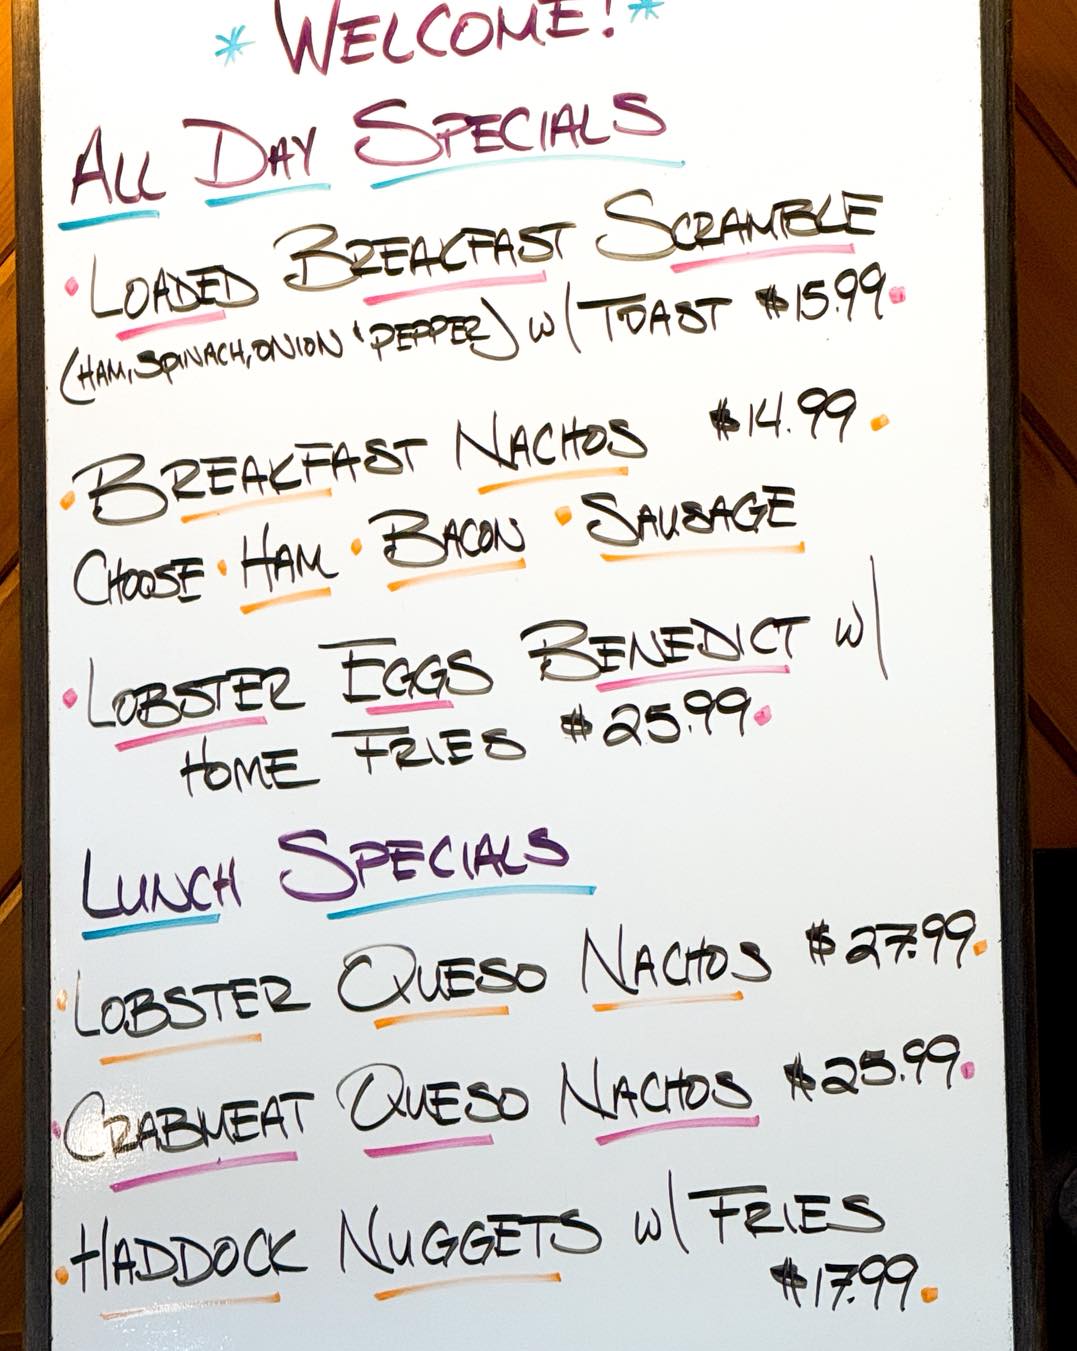 * WELCOME! *
ALL DAY SPECIALS
• LOADED BREAKFAST SCRAMBLE
(HAM, SPINACH, ONION ' PEPPER) W/ TOAST $15.99 •
• BREAKFAST NACHOS $14.99 •
CHOOSE • HAM • BACON • SAUSAGE
• LOBSTER EGGS BENEDICT W/
HOME FRIES $25.99 •
LUNCH SPECIALS
• LOBSTER QUESO NACHOS $27.99 •
• CRABMEAT QUESO NACHOS $25.99 •
• HADDOCK NUGGETS W/ FRIES
$17.99 •